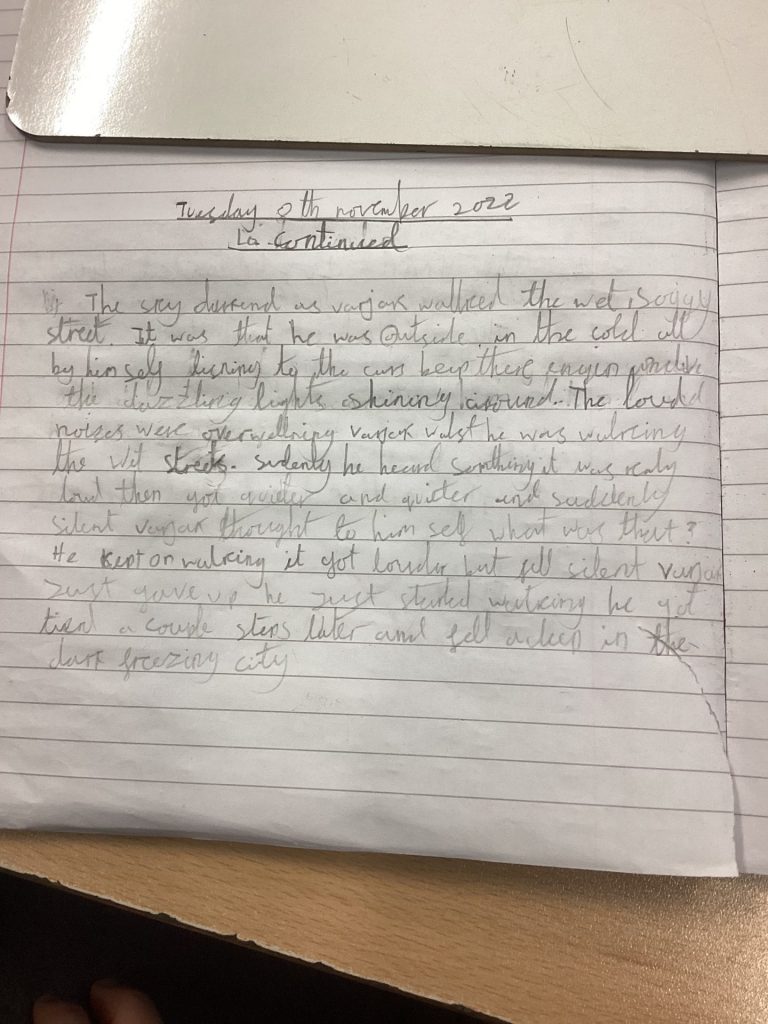 Tuesday 8th november 2022
La. continued
The sky darkend as varjak wallked the wet, soggy
street. It was that he was outside in the cold all
by him self lisning to the cars beep there engen
the dazzling lights shining around. The loudd
noizes were overwellming varjak valst he was walking
the wet streets. sudenly he heard somthing it was realy
loud then got quieter and quieter and suddenly
silent varjak thought to him self what was that?
He kept on walking it got louder but fell silent varjak
Just gave up he Just started walking he got
tierd a couple steps later and fell asleep in the
dark freezing city